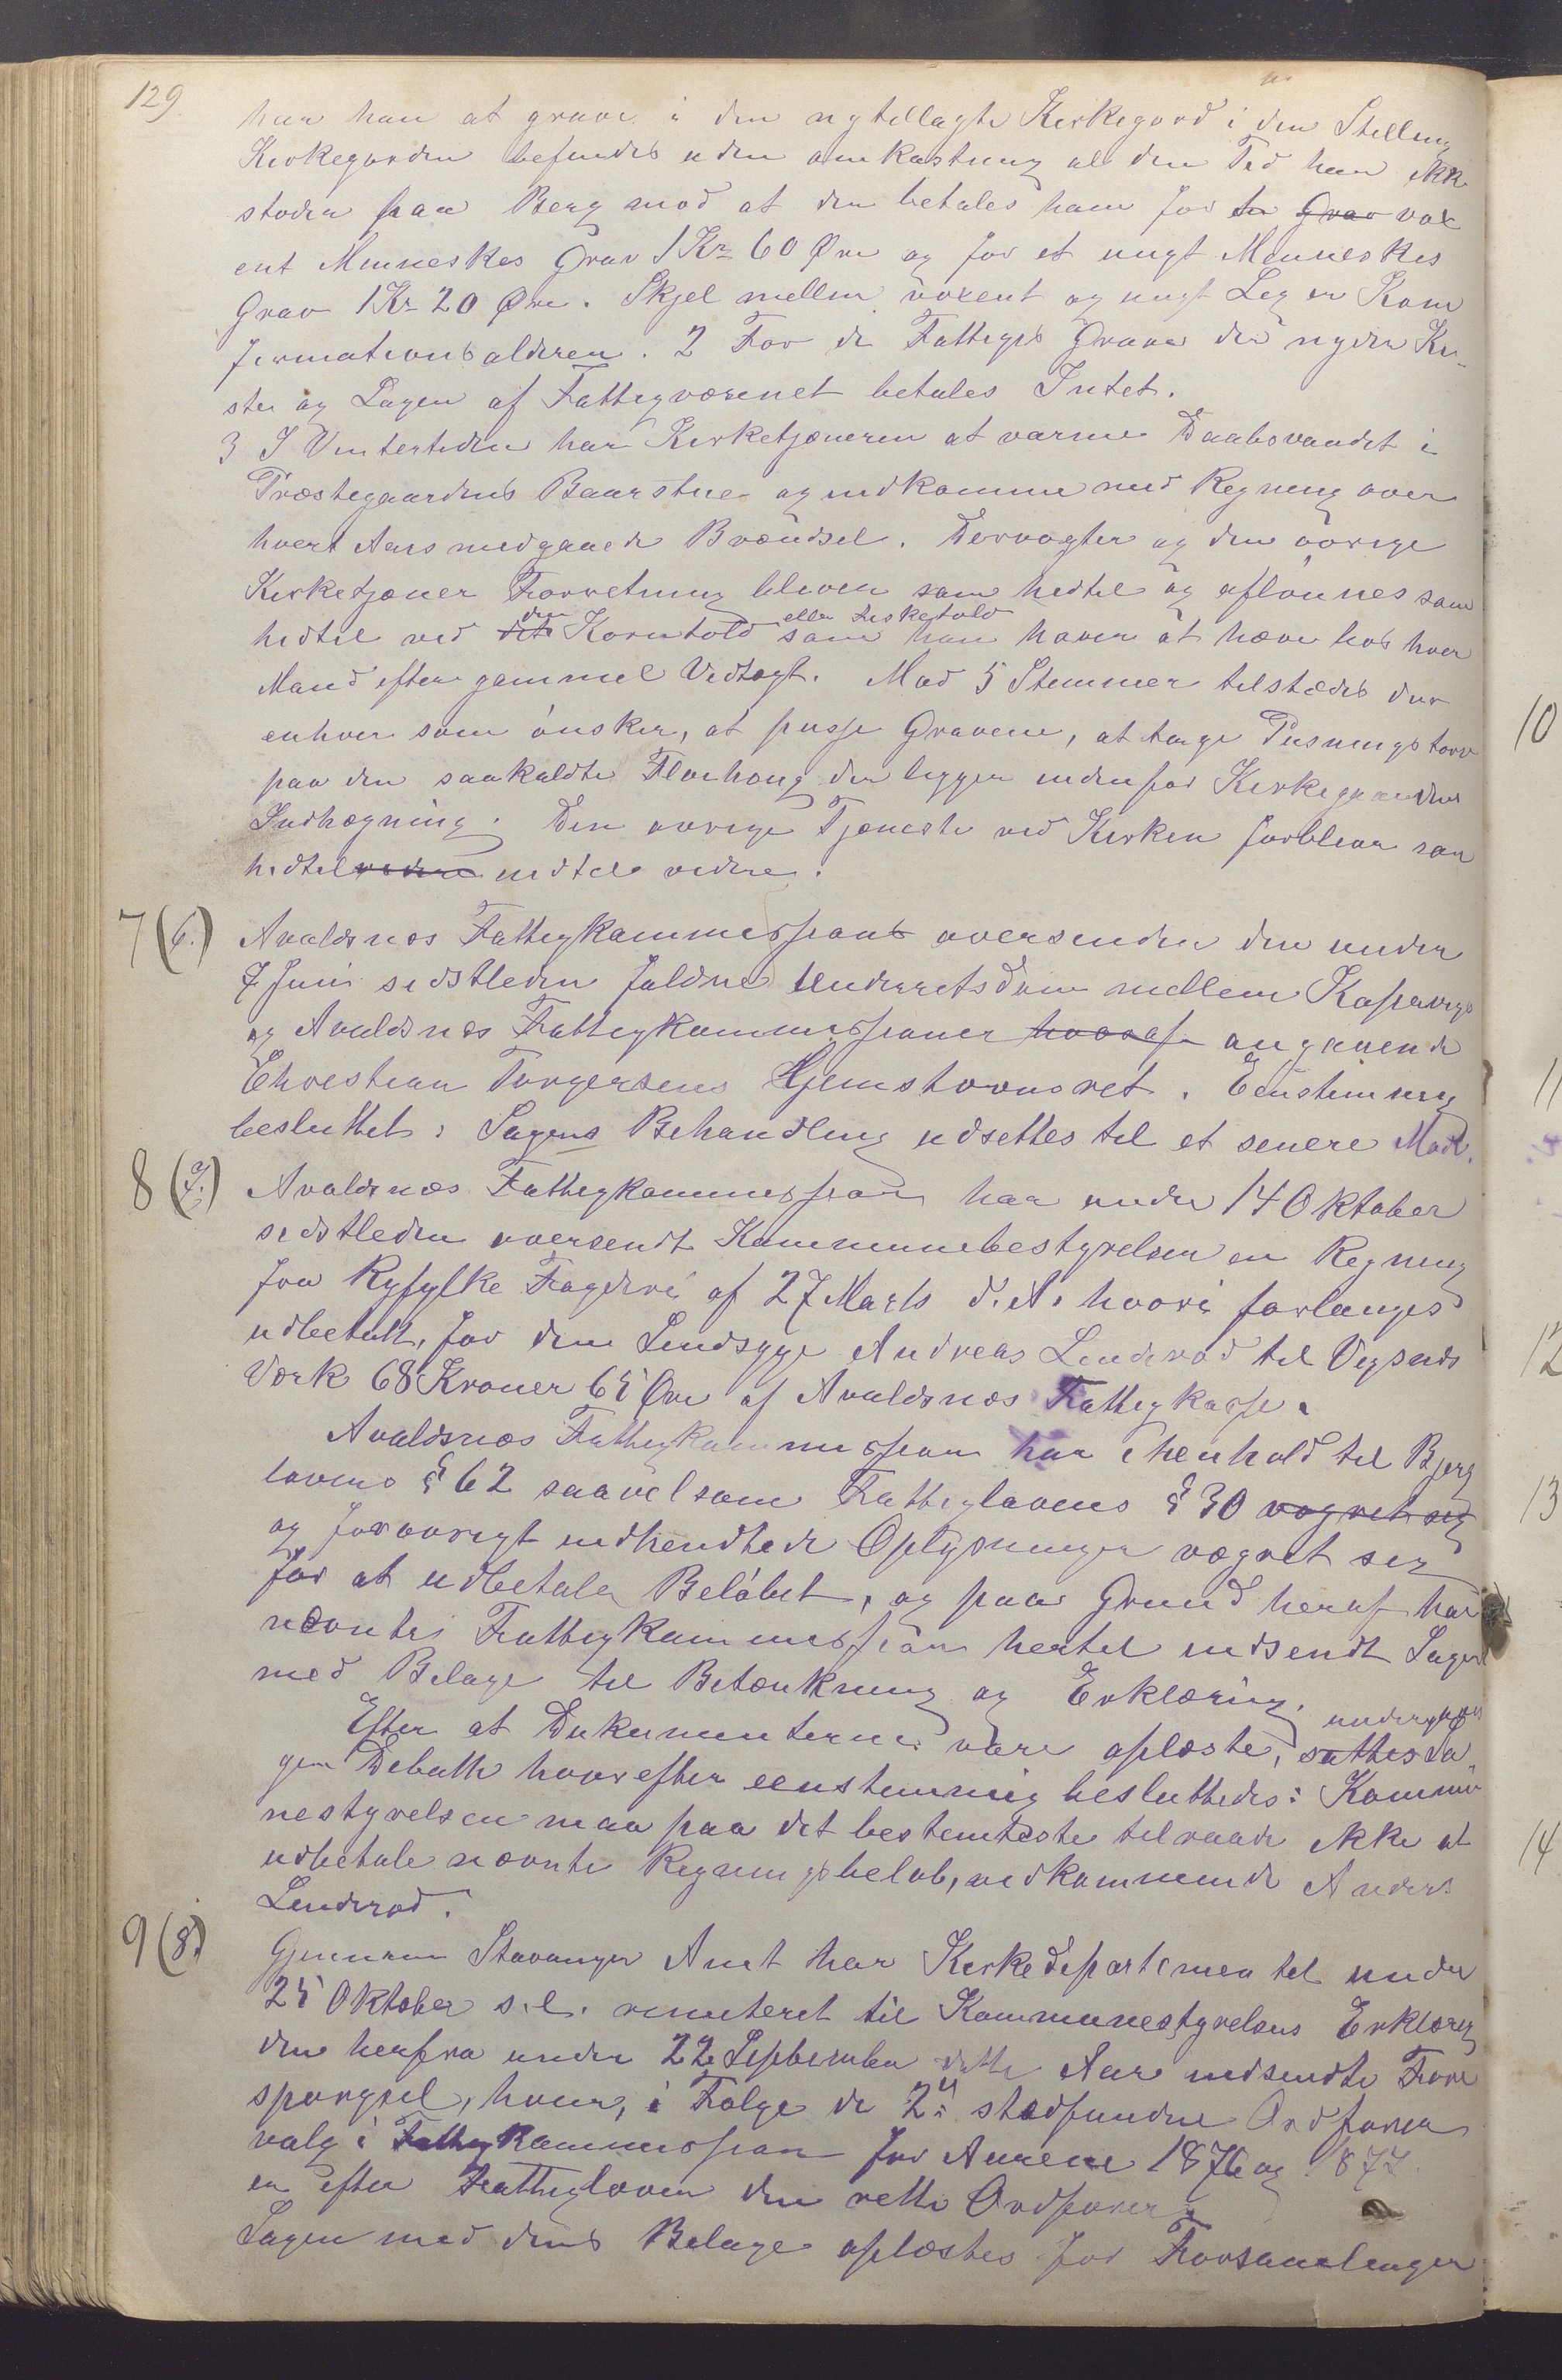 129.
har han at grave i den nytillagte Kirkegord i den Stilling
Kirkegorden befindes uden omkastning al den Tid han ikke
støder paa Berg mod at der betales ham for en Grav vox
ent Menneskes Grav 1 Kr 60 Øre og for et ungt Menneskes
Grav 1 Kr 20 Øre. Skjel mellem voxent og ungt Lig er Kon
firmationsalderen. 2 For de Fattiges Grave der nyder Ki-
ster og Lagen af Fattigvæsenet betales Intet.
3 I Vintertiden har Kirketjeneren at varme Daabsvandet i
Præstegaardens Baarstue og indkomme med Regning over
hvert Aars medgaaede Brændsel. Dervogter og den øvrige
Kirketjener Forretning bliver som hidtil og aflønnes som
den eller Fisketold
hidtil ved det Korntold som han haver at hæve hos hver
Mand efter gammel Vedtægt. Mod 5 Stemmer tilstædes der
enhver som ønsker, at pusse Gravene, at tage Pusningstorv
paa den saakaldte Flonhaug der ligger indenfor Kirkegaardens
Indhægning. Den øvrige Tjeneste ved Kirken forbliver som
hidtil videre indtil videre.
7 (6.) Avaldsnæs Fattigkommission oversender den under
7 Juni sidstleden faldne Underretsdom mellem Kopervigs
og Avaldsnæs Fattigkommissioner hvoraf angaaende
Christian Torgersens Hjemstavnsret. Eenstemmig
besluttet: Sagens Behandling udsettes til et senere Møde.
8 (7.) Avaldsnæs Fattigkommission har under 14 Oktober
sidstleden oversendt Kommunebestyrelsen en Regning
fra Ryfylke Fogderi af 27 Marts d. A. hvori forlanges
udbetalt, for den Sindsyge Andreas Linderød til Vigsnes
Værk 68 Kroner 65 Øre af Avaldsnæs Fattigkasse.
Avaldsnæs Fattigkommission har i henhold til Bjerg
lovens § 62 saavelsom Fattiglovens § 30 vægret sig
og forøvrigt indhendtede Oplysninger vægret sig
for at udbetale Beløbet, og paa Grund heraf har
nævnte Fattigkommission hertil indsendt Sagen
med Bilage til Betænkning og Erklæring.
Efter at Dokumenterne vare oplæste, sattes Sa
gen Debatt hvorefter eenstemmig besluttedes: Kommu
nestyrelsen maa paa det bestemteste tilraade ikke at
udbetale nævnte Regningsbeløb, vedkommende Anders
Linderød.
9 (8.) Gjennem Stavanger Amt har Kirkedepartementet under
25 Oktober s.l. remitteret til Kommunestyrelsens Erklæring
den herfra under 22 September dette Aar indsendte Fore
spørgsel, hvem, i Følge de 2de stedfundne Ordfører
valg i Fattigkommission for Aarene 1876 og 1877
er efter Fattigloven den rette Ordfører.
Sagen med dens Bilage oplæstes for Forsamlingen
10
11
12
13
14